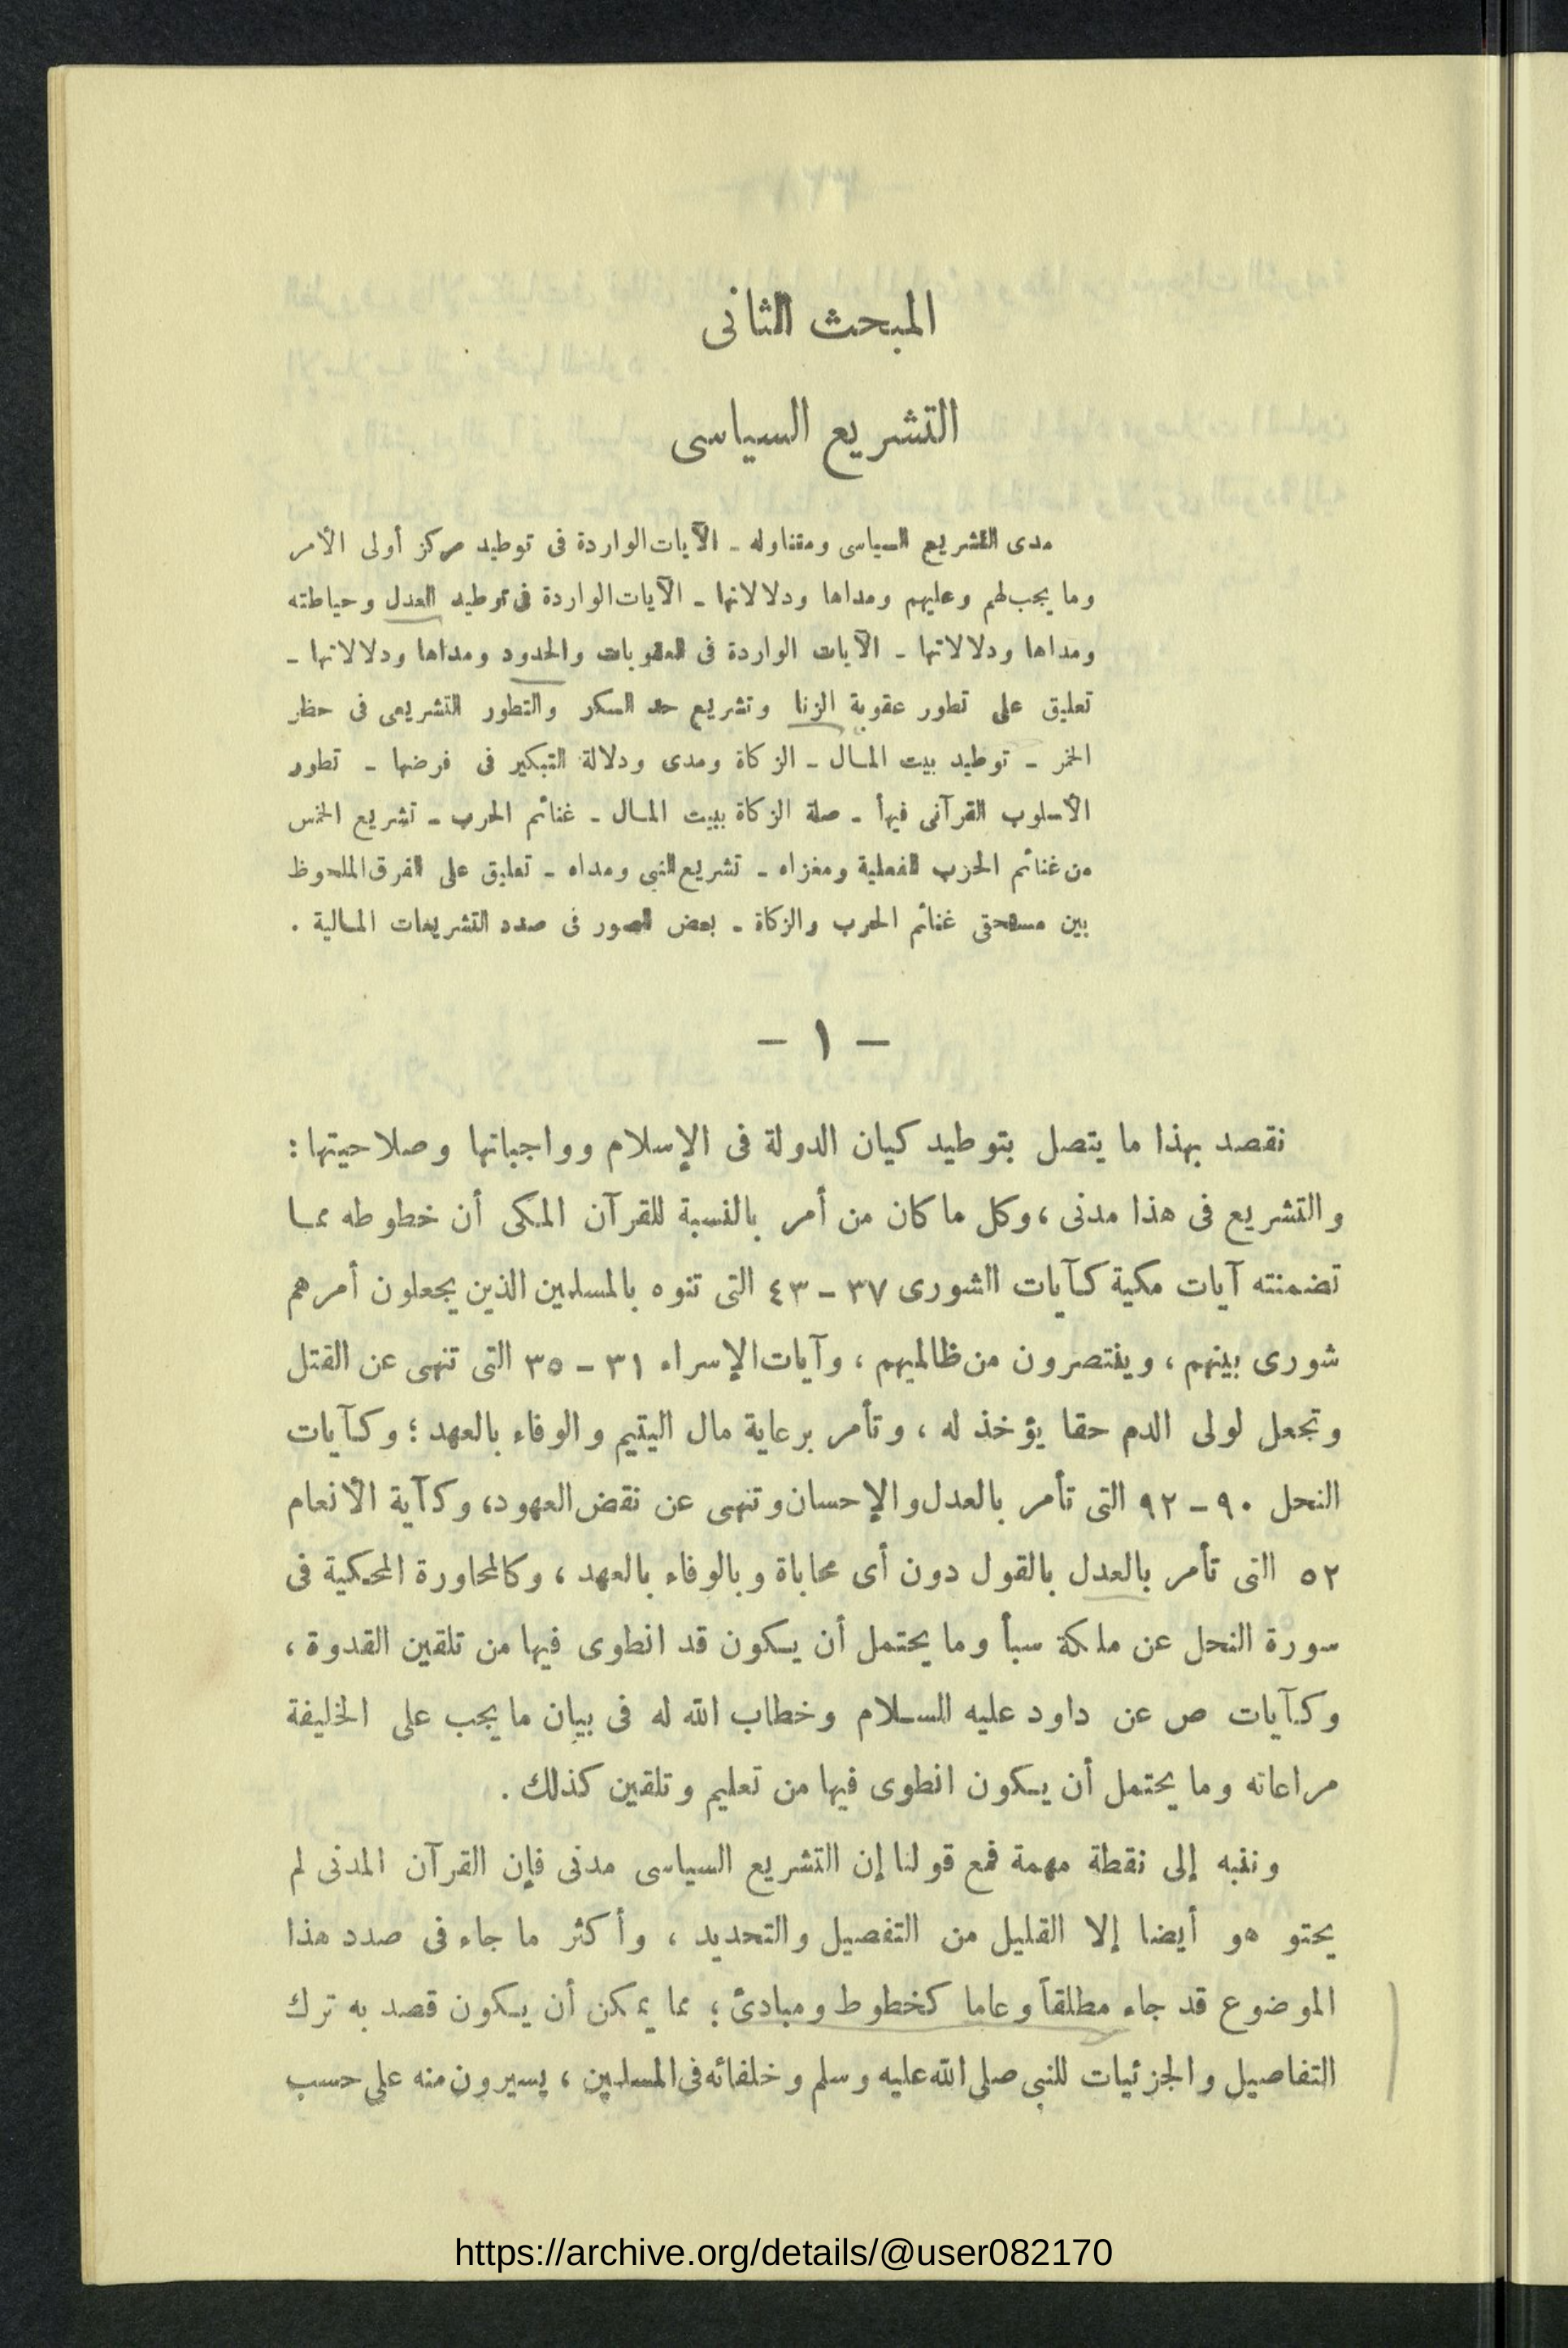 المبحث الثانى
التشريع السياسى
مدى التشريع السياسى ومتناوله ـ الآيات الواردة فى توطيد مركز أولى الأمر
وما يجب لهم وعليهم ومداها ودلالاتها ـ الآيات الواردة فى توطيد العدل وحياطته
ومداها ودلالاتها ـ الآيات الواردة فى العقوبات والحدود ومداها ودلالاتها ـ
تعليق على تطور عقوبة الزنا وتشريع حد السكر والتطور التشريعى فى حظر
الخمر ـ توطيد بيت المال ـ الزكاة ومدى ودلالة التبكير فى فرضها ـ تطور
الأسلوب القرآنى فيها ـ صلة الزكاة ببيت المال ـ غنائم الحرب ـ تشريع الخمس
من غنائم الحرب الفعلية ومغزاه ـ تشريع النبى ومداه ـ تعليق على الفرق الملحوظ
بين مستحقى غنائم الحرب والزكاة ـ بعض الصور فى صدد التشريعات المالية .
– ١ –
نقصد بهذا ما يتصل بتوطيد كيان الدولة فى الإسلام وواجباتها وصلاحيتها :
والتشريع فى هذا مدنى ، وكل ما كان من أمر بالنسبة للقرآن المكى أن خطوطه مما
تضمنته آيات مكية كآيات الشورى ٣٧ – ٤٣ التى تنوه بالمسلمين الذين يجعلون أمرهم
شورى بينهم ، وينتصرون من ظالميهم ، وآيات الإسراء ٣١ – ٣٥ التى تنهى عن القتل
وتجعل لولى الدم حقا يؤخذ له ، وتأمر برعاية مال اليتيم والوفاء بالعهد ؛ وكآيات
النحل ٩٠ – ٩٢ التى تأمر بالعدل والإحسان وتنهى عن نقض العهود ، وكآية الأنعام
٥٢ التى تأمر بالعدل بالقول دون أى محاباة وبالوفاء بالعهد ، وكالمحاورة المحكية فى
سورة النحل عن ملكة سبأ وما يحتمل أن يكون قد انطوى فيها من تلقين القدوة ،
وكآيات ص عن داود عليه السلام وخطاب الله له فى بيان ما يجب على الخليفة
مراعاته وما يحتمل أن يكون انطوى فيها من تعليم وتلقين كذلك .
وننبه إلى نقطة مهمة فمع قولنا إن التشريع السياسى مدنى فإن القرآن المدنى لم
يحتو هو أيضا إلا القليل من التفصيل والتحديد ، وأكثر ما جاء فى صدد هذا
الموضوع قد جاء مطلقاً وعاما كخطوط ومبادئ ؛ مما يمكن أن يكون قصد به ترك
التفاصيل والجزئيات للنبى صلى الله عليه وسلم وخلفائه فى المسلمين ، يسيرون منه على حسب
https://archive.org/details/@user082170